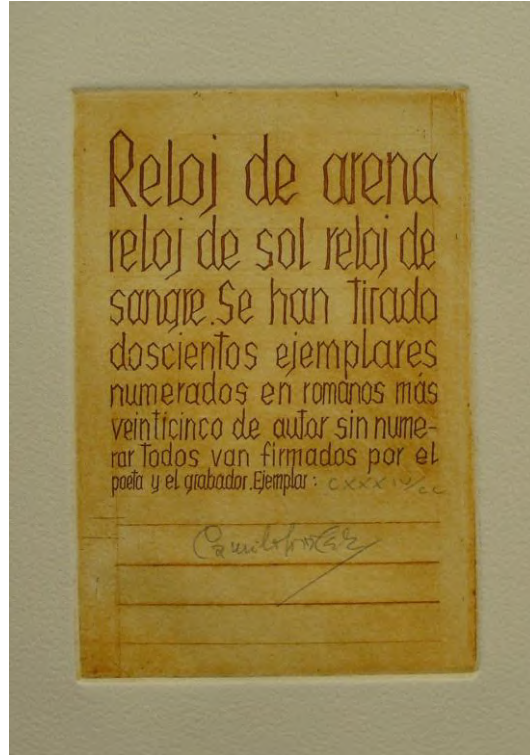 Reloj de arena
reloj de sol reloj de
sangre. Se han tirado
doscientos ejemplares
numerados en romanos más
veinticinco de autor sin nume-
rar Todos van firmados por el
poeta y el grabador. Ejemplar: CXXXIV/CC